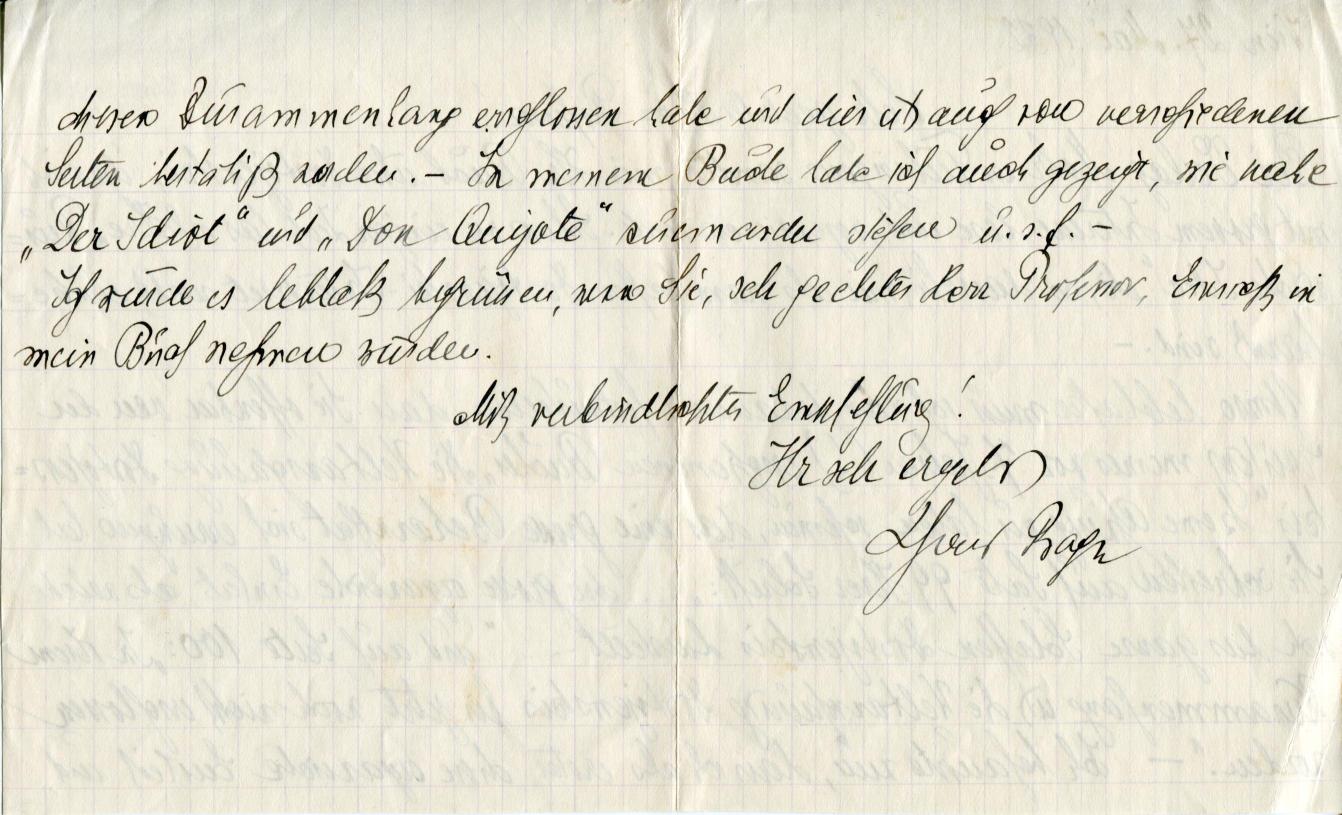 diesen Zusammenhang erschlossen habe und dies ist auch von verschiedenen
Seiten bestätigt worden. – In meinem Buche habe ich auch gezeigt, wie nahe
„Der Idiot“ und „Don Quijote“ zueinander stehen u. s. f. –
Ich würde es lebhaft begrüssen, wenn Sie, sehr geehrter Herr Professor, Einsicht in
mein Buch nehmen würden.
Mit verbindlichster Empfehlung!
Ihr sehr ergeb.